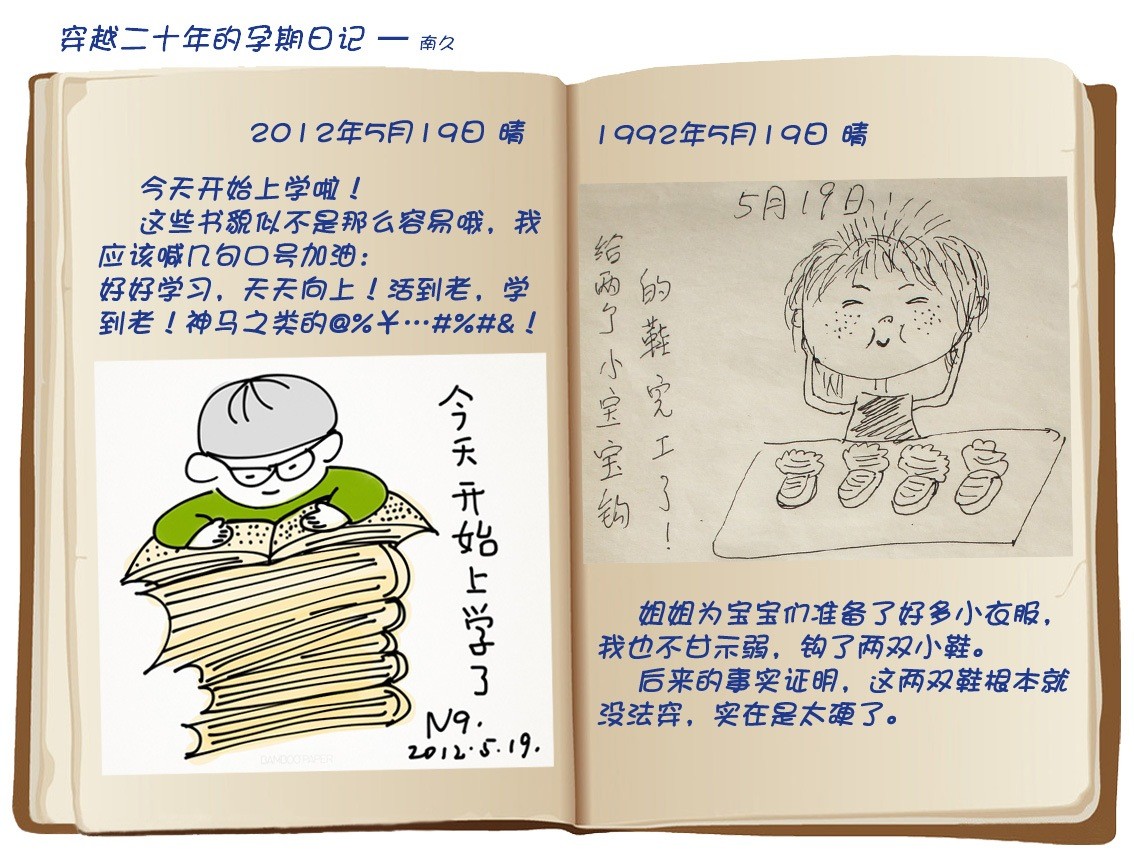 穿越二十年的孕期日记 — 南久
2012年5月19日 晴
今天开始上学啦！
这些书貌似不是那么容易哦，我
应该喊几句口号加油：
好好学习，天天向上！活到老，学
到老！神马之类的@%￥…#%#&！
今天开始上学了
N9.
2012.5.19.
BAMBOO PAPER
1992年5月19日 晴
5月19日
给两个小宝宝钩
的鞋完工了！
姐姐为宝宝们准备了好多小衣服，
我也不甘示弱，钩了两双小鞋。
后来的事实证明，这两双鞋根本就
没法穿，实在是太硬了。